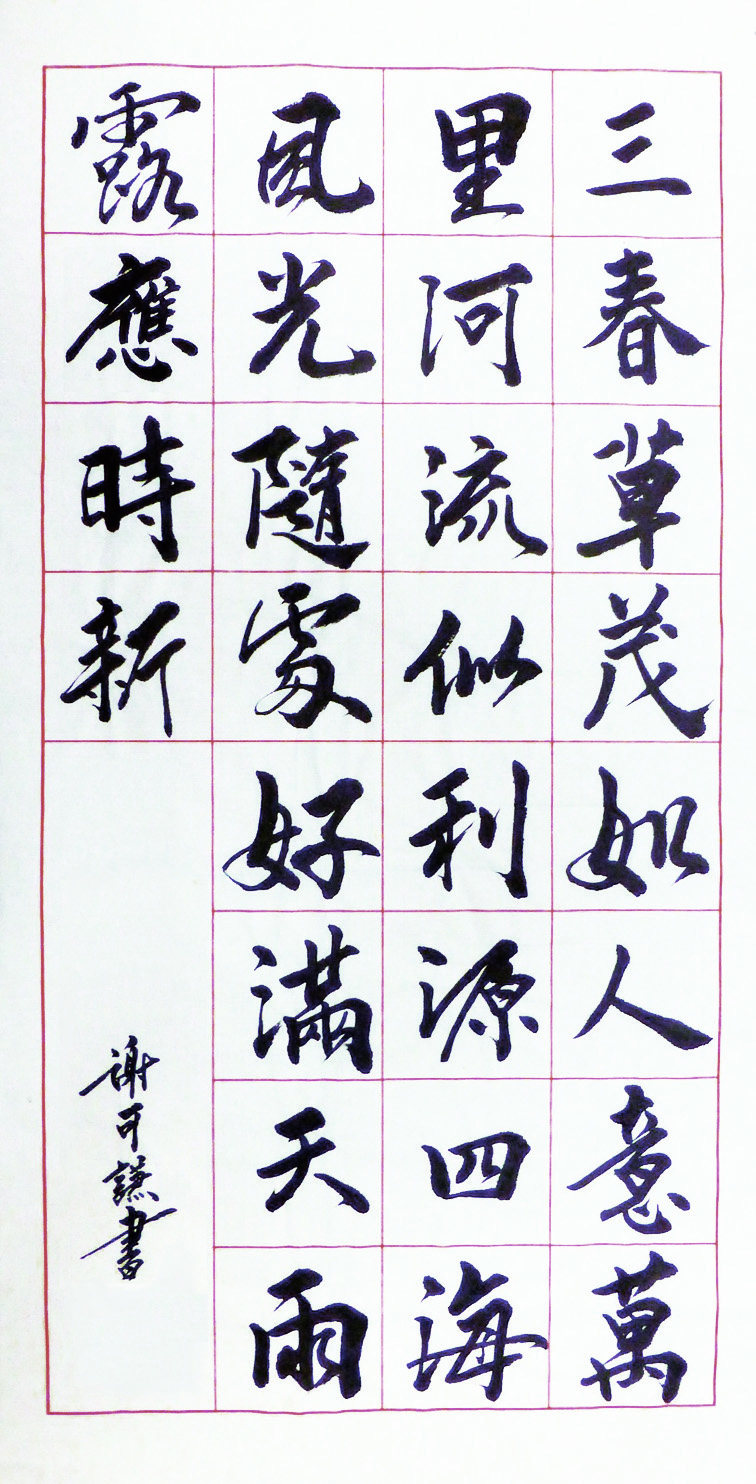 三春草茂如人意萬
里河流似利源四海
風光隨處好滿天雨
露應時新
謝可謙書